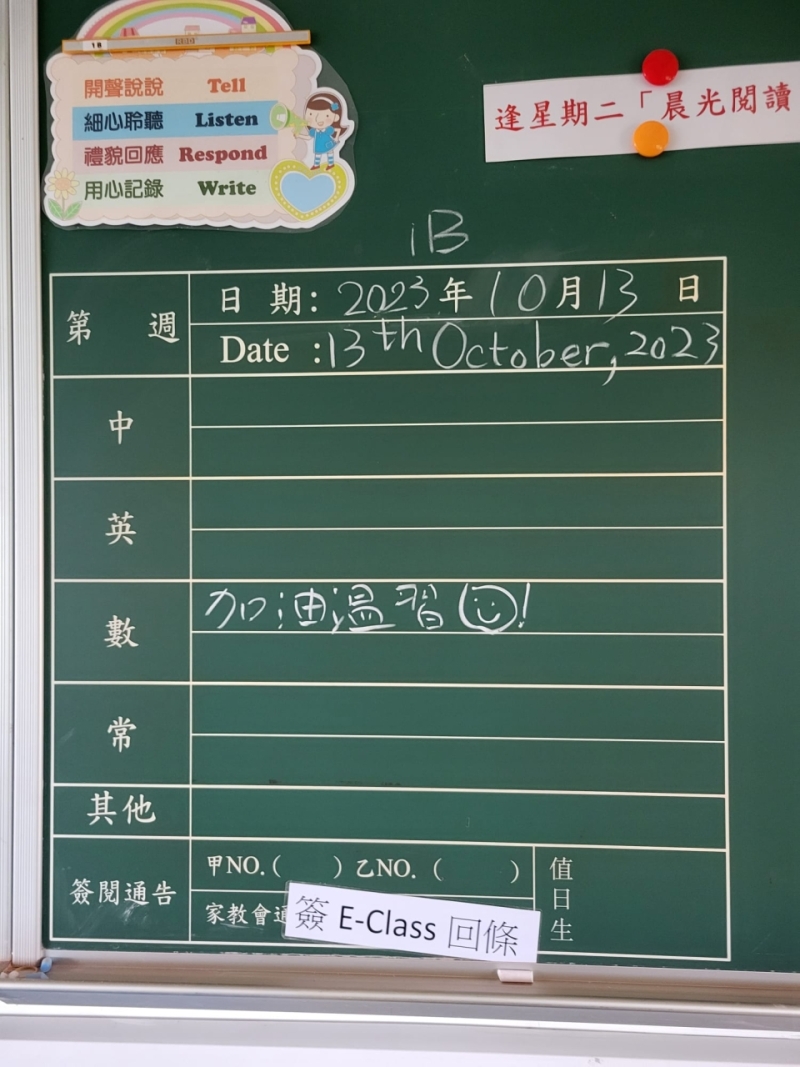 開聲說說 Tell
細心聆聽 Listen
禮貌回應 Respond
用心記錄 Write
逢星期二「晨光閱讀
1B
第 週
日 期: 2023年10月13日
Date :13th October, 2023
中
英
數
加油溫習!
常
其他
簽閱通告
甲NO.( ) 乙NO. ( )
家教會通
簽 E-Class 回條
值日生